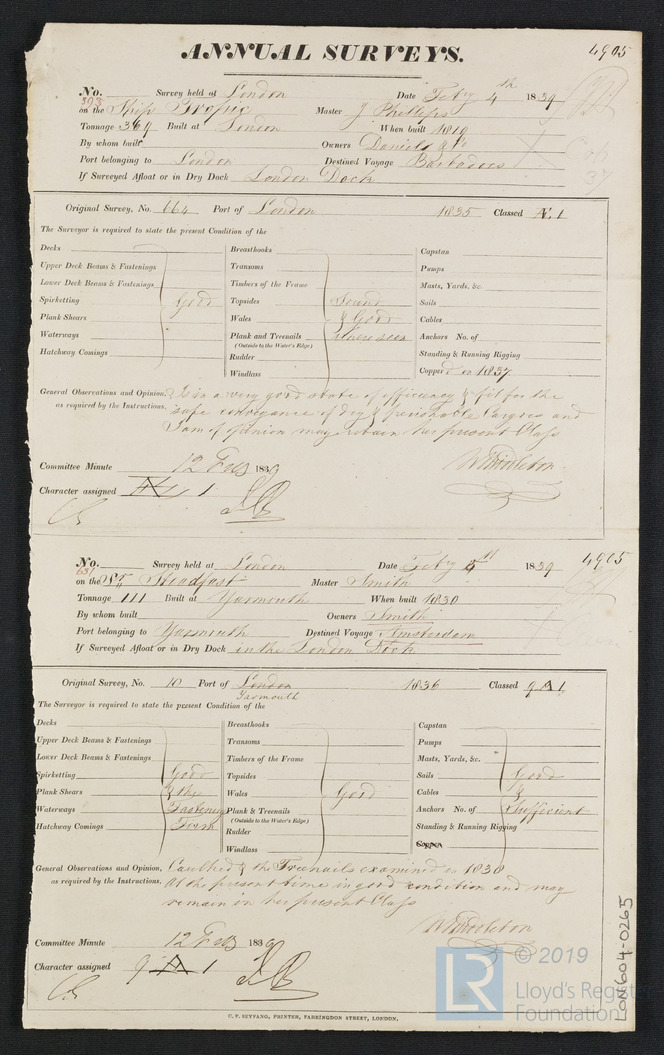 ANNUAL SURVEYS.
4905
No. 593 Survey held at London Date Feby 4th 1839
on the Ship Tropic Master J Phillips
Tonnage 364 Built at London When built 1819
By whom built Owners Daniels & Co
Port belonging to London Destined Voyage Barbadoes
If Surveyed Afloat or in Dry Dock London Dock
Original Survey, No. 664 Port of London 1835 Classed Æ 1
The Surveyor is required to state the present Condition of the
Decks
Upper Deck Beams & Fastenings
Lower Deck Beams & Fastenings
Spirketting Good
Plank Shears
Waterways
Hatchway Comings
Breasthooks
Transoms
Timbers of the Frame
Topsides Sound
Wales & Good
Plank and Treenails where seen
(Outside to the Water's Edge)
Rudder
Windlass
Capstan
Pumps
Masts, Yards, &c.
Sails
Cables
Anchors No. of
Standing & Running Rigging
Copperd in 1837
General Observations and Opinion, Is in a very good state of efficiency & fit for the
as required by the Instructions. safe conveyance of dry & perishable Cargoes and
I am of opinion may retain her present Class
W Middleton
Committee Minute 12 Feb 1839
Character assigned Æ 1
No. 631 Survey held at London Date Feby 1839
4905
on the Sr Steadfast Master Smith
Tonnage 111 Built at Yarmouth When built 1830
By whom built Owners Smith
Port belonging to Yarmouth Destined Voyage Amsterdam
If Surveyed Afloat or in Dry Dock in the London Dock
Original Survey, No. 10 Port of London 1836 Classed 9 A 1
Yarmouth
The Surveyor is required to state the present Condition of the
Decks
Upper Deck Beams & Fastenings
Lower Deck Beams & Fastenings
Spirketting Good
Plank Shears & the
Waterways Fastenings
Hatchway Comings Firm
Breasthooks
Transoms
Timbers of the Frame
Topsides
Wales Good
Plank & Treenails
(Outside to the Water's Edge)
Rudder
Windlass
Capstan
Pumps
Masts, Yards, &c.
Sails Good
Cables &
Anchors No. of Sufficient
Standing & Running Rigging
Copper
General Observations and Opinion, Caulked & the Treenails examined in 1838
as required by the Instructions. At the present time in good condition and may
remain in her present Class
W Middleton
Committee Minute 12 Feb 1839
Character assigned 9 A 1
C. F. SEYFANG, PRINTER, FARRINGDON STREET, LONDON.
LON604-0265
LR
© 2019
Lloyd's Register
Foundation